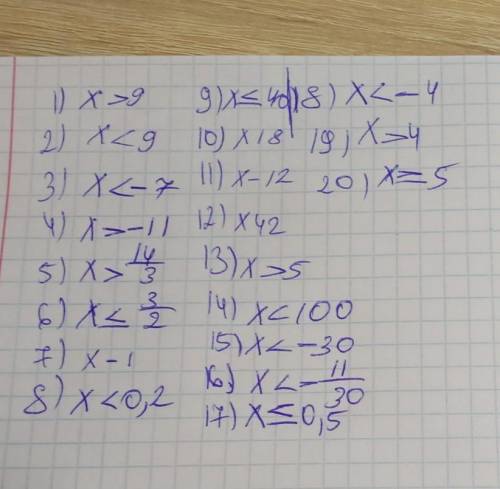 1) x>9
2) x<9
3) x<-7
4) x>-11
5) x>14/3
6) x≤3/2
7) x-1
8) x<0,2
9) x≤40
10) x18
11) x-12
12) x42
13) x>5
14) x<100
15) x<-30
16) x<-11/30
17) x≤0,5
18) x<-4
19) x>4
20) x=5